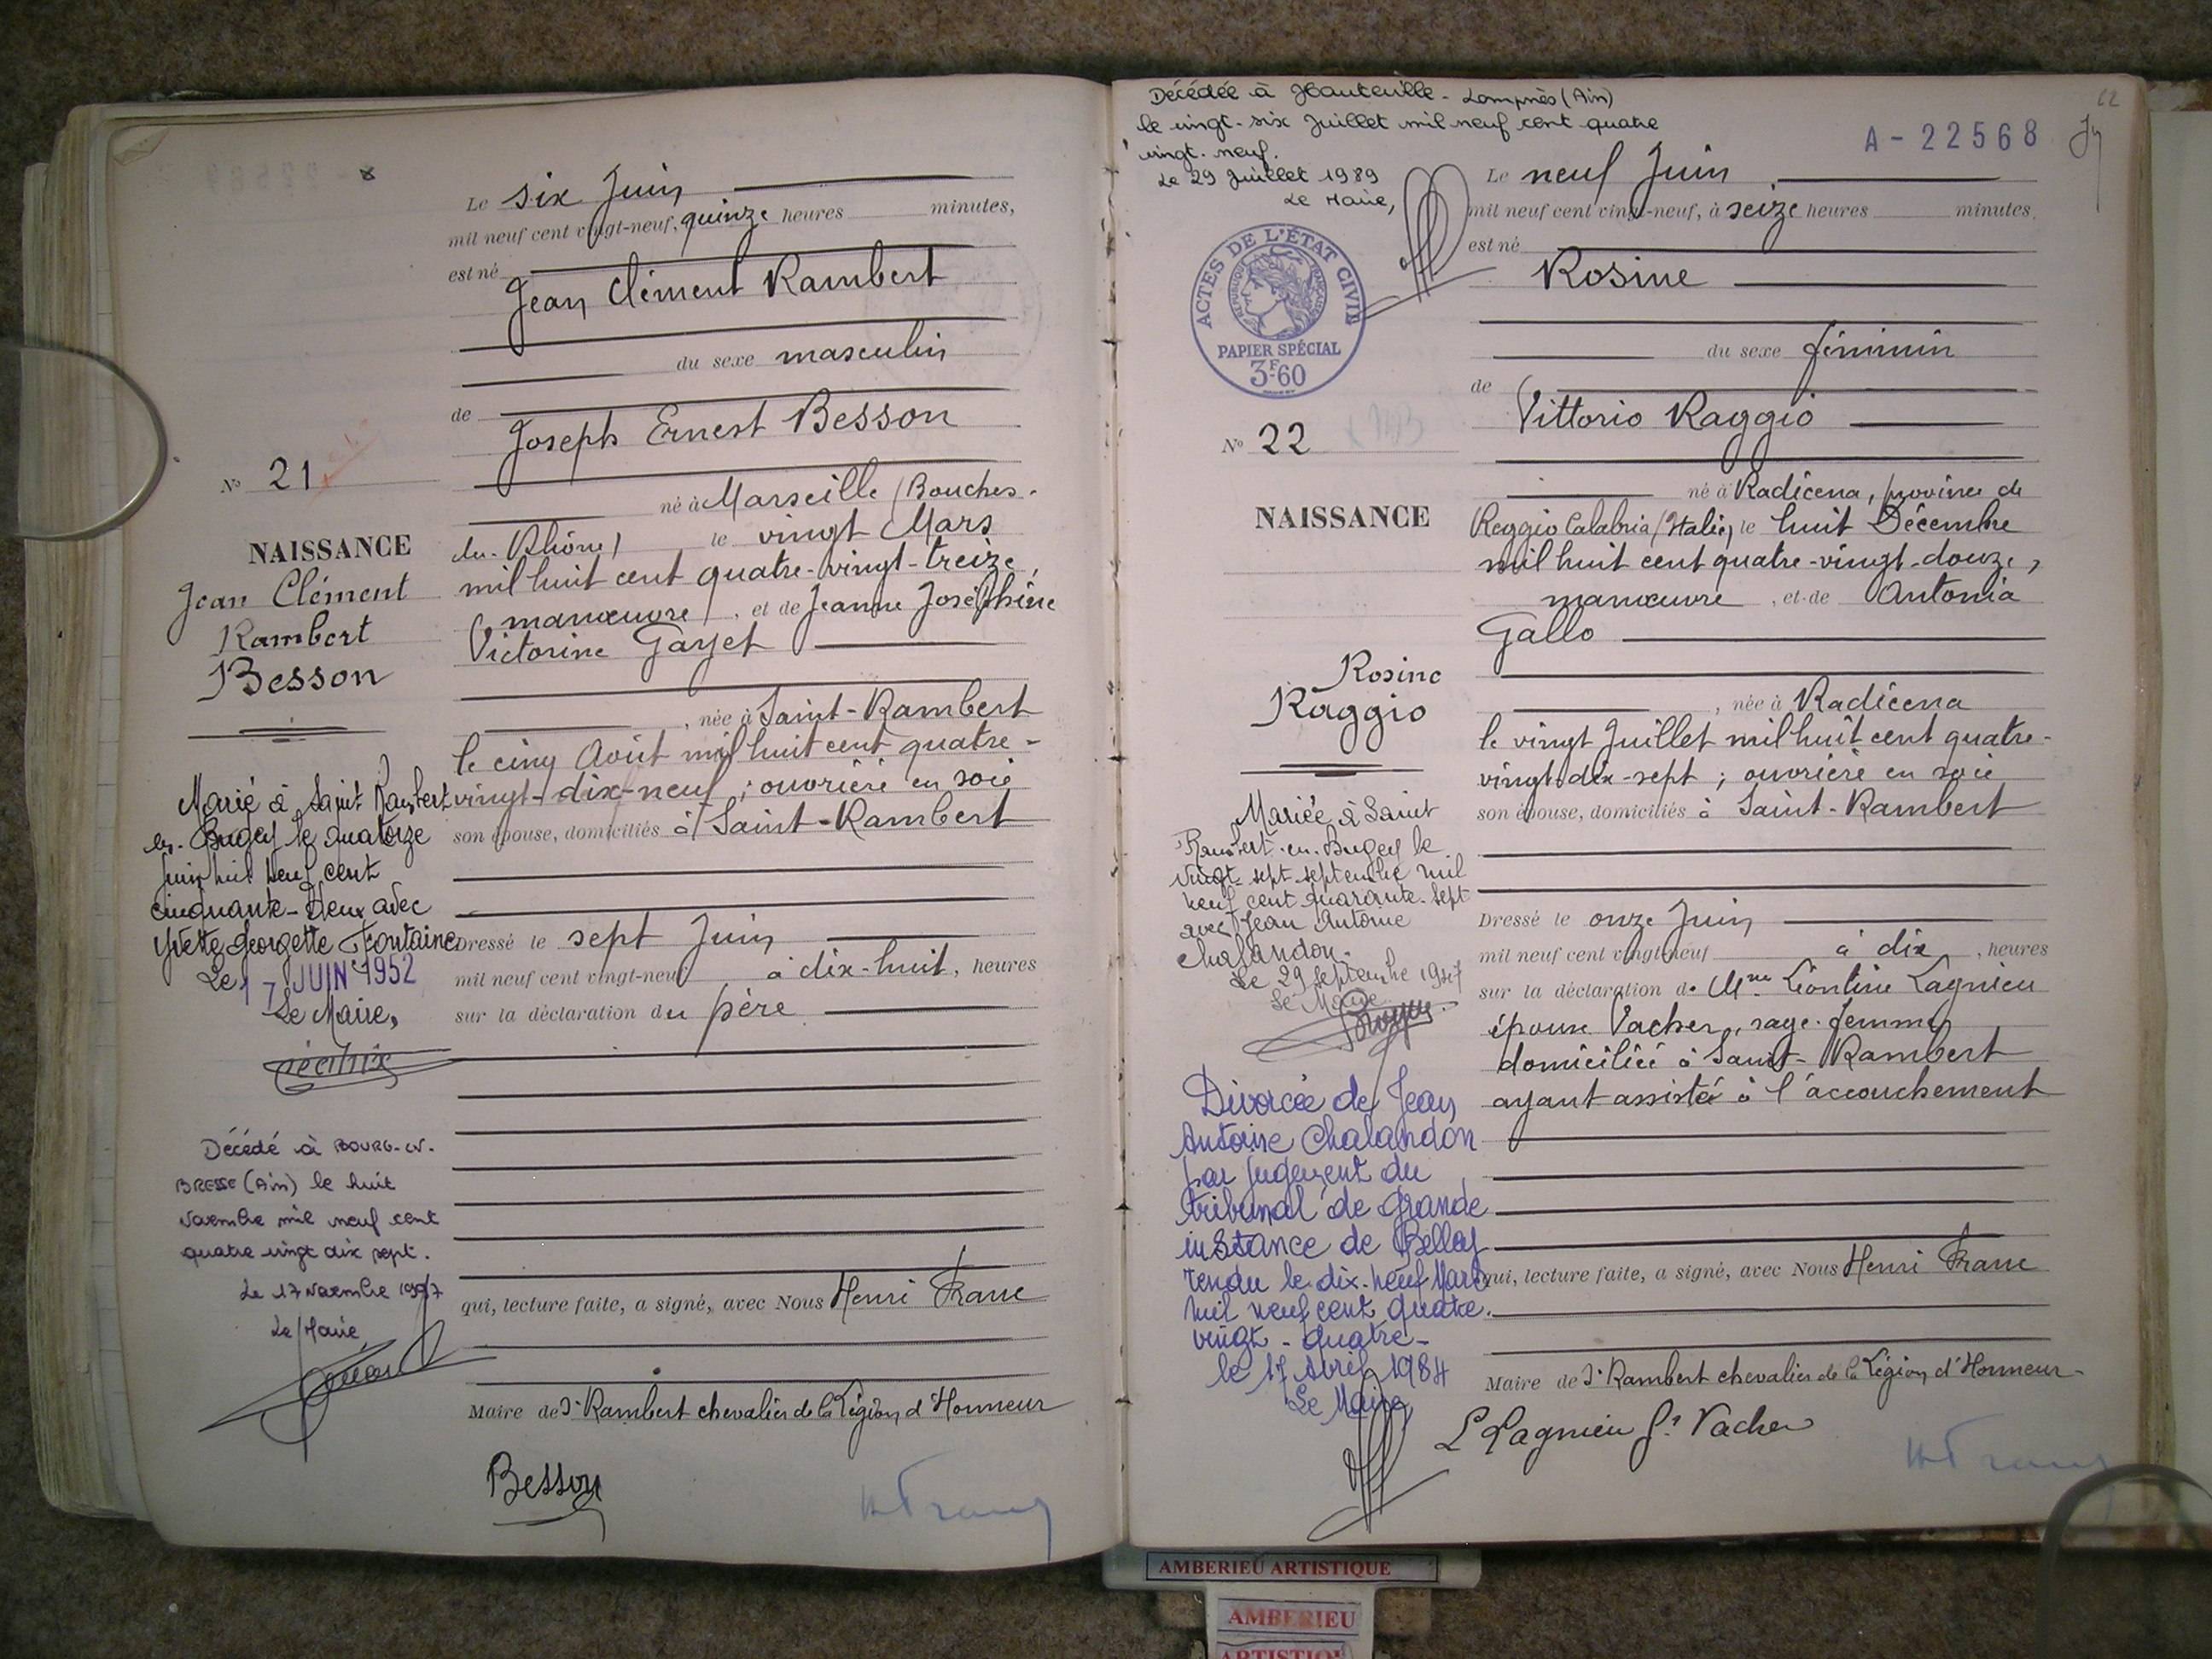 Le six Juin
mil neuf cent vingt-neuf, quinze heures minutes,
est né
Jean Clément Rambert
du sexe masculin
de
Joseph Ernest Besson
né à Marseille (Bouches-
du-Rhône) le vingt Mars
mil huit cent quatre-vingt-treize,
manœuvre, et de Jeanne Joséphine
Victorine Gayet
, née à Saint-Rambert
le cinq Août mil huit cent quatre-
vingt-dix-neuf ; ouvrière en soie
son épouse, domiciliés à Saint-Rambert
Dressé le sept Juin
mil neuf cent vingt-neuf à dix-huit, heures
sur la déclaration du père
qui, lecture faite, a signé, avec Nous Henri Franc
Maire de St Rambert chevalier de la Légion d'Honneur
Besson
H Franc
No 21
NAISSANCE
Jean Clément
Rambert
Besson
Marié à Saint Rambert
en-Bugey le quatorze
Juin mil neuf cent
cinquante-deux avec
Yvette Georgette Fontaine
Le 17 JUIN 1952
Le Maire,
Décédé à BOURG-EN-
BRESSE (Ain) le huit
Novembre mil neuf cent
quatre vingt dix sept.
Le 17 Novembre 1997
Le Maire
Décédée à Hauteville-Lompnès (Ain)
le vingt-six Juillet mil neuf cent quatre
vingt-neuf.
Le 29 Juillet 1989
Le Maire,
12
A-22568
ACTES DE L'ÉTAT CIVIL
RÉPUBLIQUE FRANÇAISE
PAPIER SPÉCIAL
3F60
No 22
NAISSANCE
Rosine
Raggio
Mariée à Saint
Rambert-en-Bugey le
vingt-sept septembre mil
neuf cent quarante-sept
avec Jean Antoine
Chalandon.
Le 29 septembre 1947
Le Maire
Divorcée de Jean
Antoine Chalandon
par jugement du
tribunal de grande
instance de Belley
rendu le dix-neuf Mars
mil neuf cent quatre-
vingt-quatre-
le 17 Avril 1984
Le Maire,
Le neuf Juin
mil neuf cent vingt-neuf, à seize heures minutes,
est né
Rosine
du sexe féminin
de
Vittorio Raggio
né à Radicena, province de
Reggio Calabria (Italie) le huit Décembre
mil huit cent quatre-vingt-douze,
manœuvre, et de Antonia
Gallo
, née à Radicena
le vingt Juillet mil huit cent quatre-
vingt-dix-sept ; ouvrière en soie
son épouse, domiciliés à Saint-Rambert
Dressé le onze Juin
mil neuf cent vingt-neuf à dix, heures
sur la déclaration de Mme Léontine Lagnieu
épouse Vacher, sage-femme
domiciliée à Saint-Rambert
ayant assisté à l'accouchement
qui, lecture faite, a signé, avec Nous Henri Franc
Maire de St Rambert chevalier de la Légion d'Honneur
L Lagnieu f. Vacher
H Franc
AMBERIEU ARTISTIQUE
AMBERIEU
ARTISTIQUE